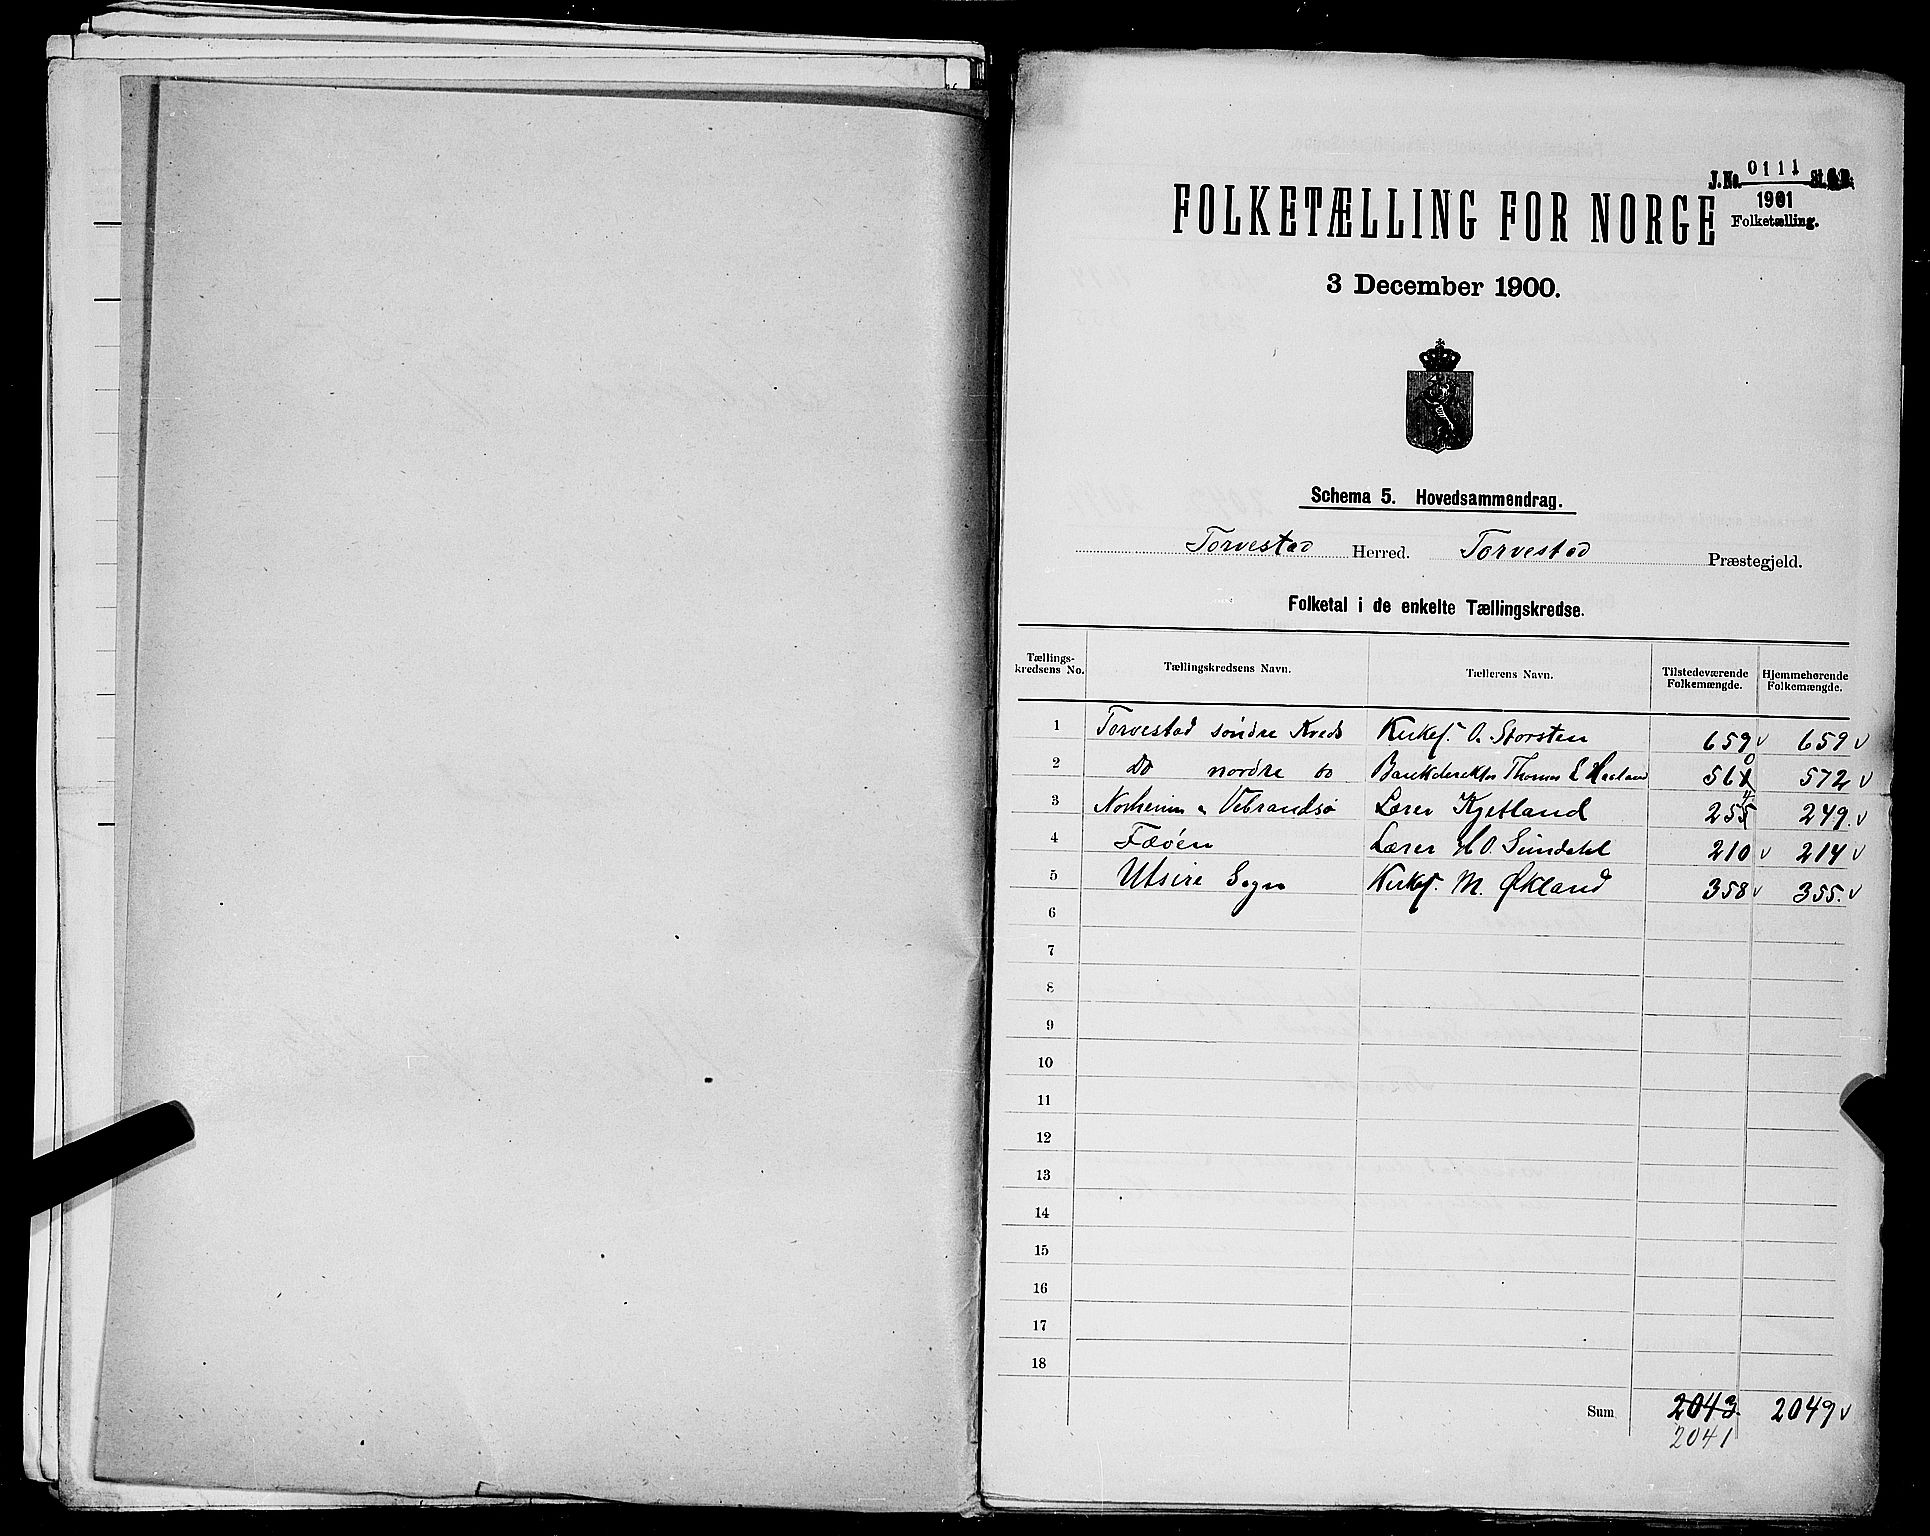 J. No. 0111 St. C. B.
1901
Folketælling.
FOLKETÆLLING FOR NORGE
3 December 1900.
Schema 5. Hovedsammendrag.
Torvestad Herred. Torvestad Præstegjeld.
Folketal i de enkelte Tællingskredse.
Tællings-kredsens No. Tællingskredsens Navn. Tællerens Navn. Tilstedeværende Folkemængde. Hjemmehørende Folkemængde.
1 Torvestad søndre Kreds Kirkes. O. Storsten 659 v 659 v
2 Do nordre do Bankdirektør Thomas Haaland 560 572 v
3 Norheim & Vibrandsø Lærer Kjetland 254 249. v
4 Fæøen Lærer H. O. Sundahl 210 v 214 v
5 Utsire Sogn Kirkes. M. Økland 358 v 355. v
6
7
8
9
10
11
12
13
14
15
16
17
18
Sum 2043. 2049 v
2041